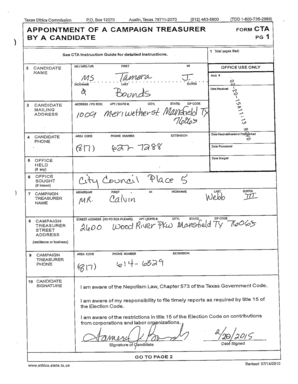 Texas Ethics Commission P.O. Box 12070 Austin, Texas 78711-2070 (512) 463-5800 (TDD 1-800-735-2989)
APPOINTMENT OF A CAMPAIGN TREASURER BY A CANDIDATE
FORM CTA
PG 1
See CTA Instruction Guide for detailed instructions.
1 Total pages filed:
2 CANDIDATE NAME
MS/MRS/MR FIRST MI
MS Tamera J.
NICKNAME LAST SUFFIX
Bounds
OFFICE USE ONLY
Date Received
3 CANDIDATE MAILING ADDRESS
ADDRESS / PO BOX; APT / SUITE #; CITY; STATE; ZIP CODE
1009 Meriwether St Mansfield Tx
76063
4 CANDIDATE PHONE
AREA CODE PHONE NUMBER EXTENSION
(817) 637-7288
Date Processed
Date Imaged
5 OFFICE HELD (if any)
6 OFFICE SOUGHT (if known)
City Council Place 5
7 CAMPAIGN TREASURER NAME
MS/MRS/MR FIRST MI NICKNAME LAST SUFFIX
MR. Calvin Webb III
8 CAMPAIGN TREASURER STREET ADDRESS (residence or business)
STREET ADDRESS (NO PO BOX PLEASE); APT / SUITE #; CITY; STATE; ZIP CODE
2600 Wood River Pkw Mansfield Tx 76063
9 CAMPAIGN TREASURER PHONE
AREA CODE PHONE NUMBER EXTENSION
(817) 614-6529
10 CANDIDATE SIGNATURE
I am aware of the Nepotism Law, Chapter 573 of the Texas Government Code.
I am aware of my responsibility to file timely reports as required by title 15 of the Election Code.
I am aware of the restrictions in title 15 of the Election Code on contributions from corporations and labor organizations.
Tamera J. Bounds
Signature of Candidate
2/20/2015
Date Signed
GO TO PAGE 2
www.ethics.state.tx.us